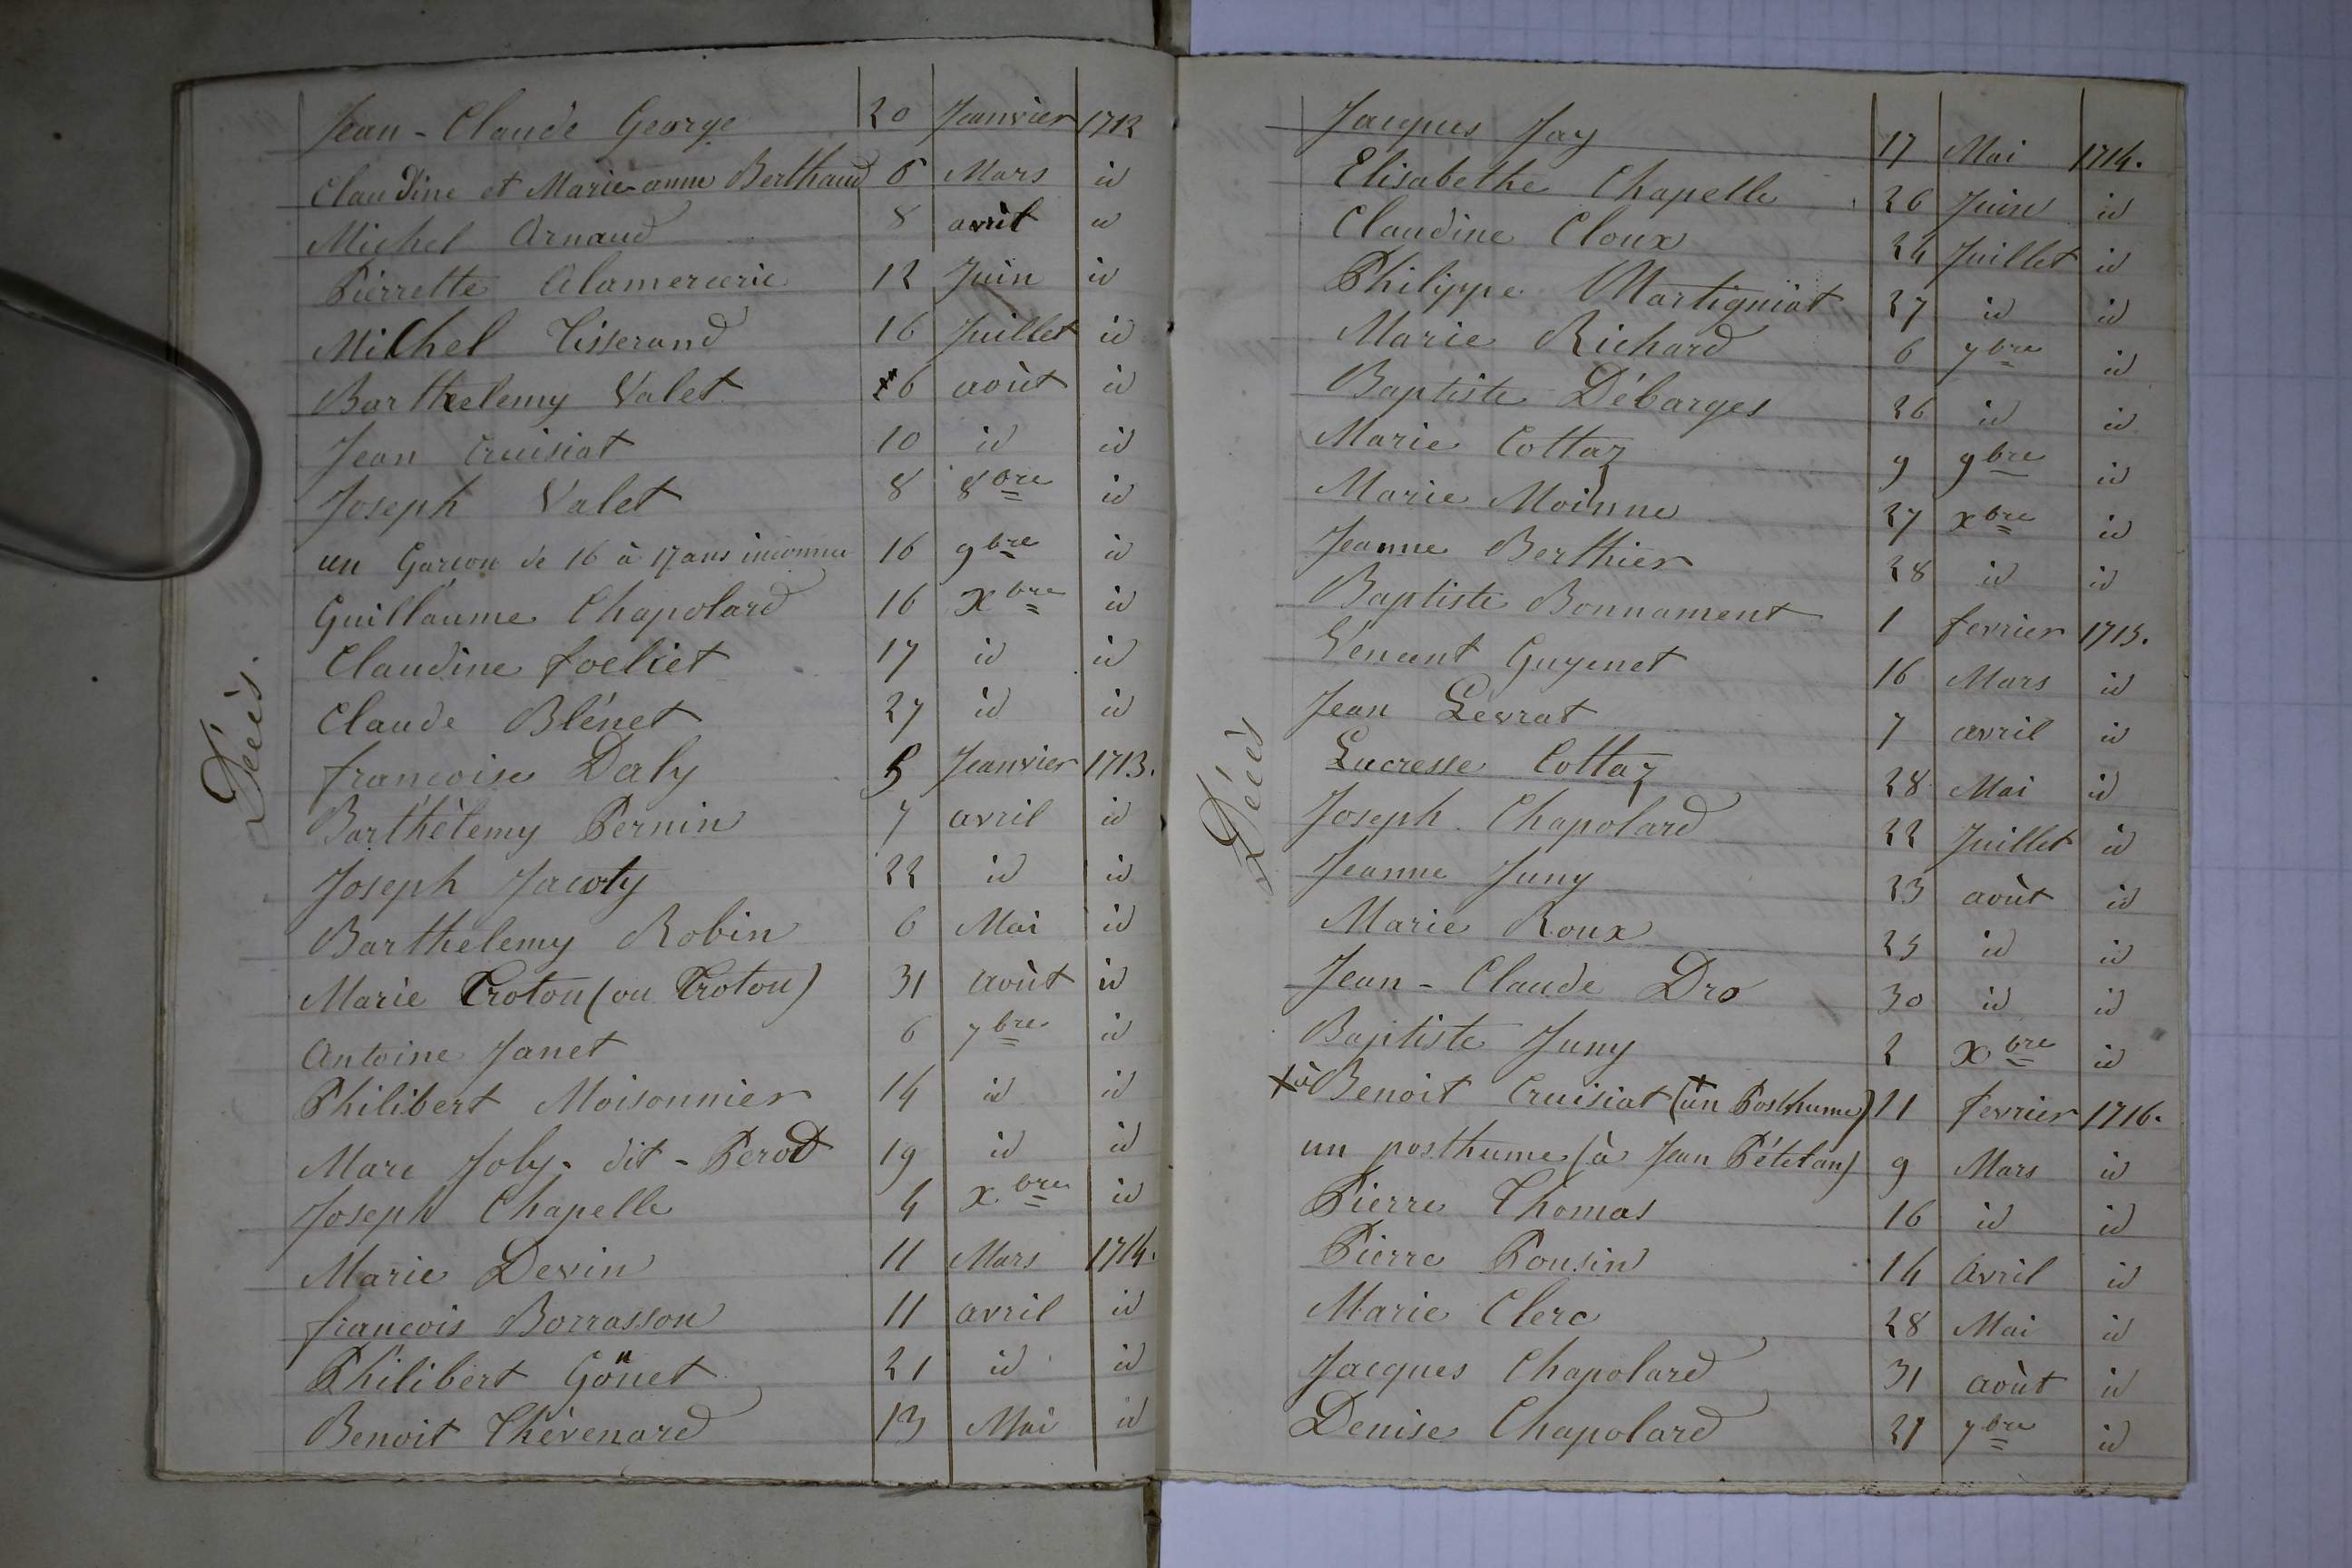 Décès.
Jean-Claude George 20 Janvier 1712
Claudine et Marie-anne Berthaud 6 Mars id
Michel Arnaud 8 avril id
Pierrette Alamercerie 12 Juin id
Michel Tisserand 16 Juillet id
Barthelemy Valet 6 août id
Jean Cruisiat 10 id id
Joseph Valet 8 8bre id
un Garcon de 16 à 17 ans inconnu 16 9bre id
Guillaume Chapolard 16 xbre id
Claudine foeliet 17 id id
Claude Blénet 27 id id
francoise Daly 5 Janvier 1713.
Barthélemy Pernin 7 avril id
Joseph Jacoty 22 id id
Barthelemy Robin 6 Mai id
Marie Croton (ou Troton) 31 Août id
Antoine Janet 6 7bre id
Philibert Moisonnier 14 id id
Marc Joly-dit-Perod 19 id id
Joseph Chapelle 4 xbre id
Marie Devin 11 Mars 1714.
francois Borrasson 11 avril id
Philibert Gonet 21 id id
Benoit Thévenard 13 Mai id
Décès
Jacques Jay 17 Mai 1714.
Elisabethe Chapelle 26 Juin id
Claudine Cloux 24 Juillet id
Philippe Martigniat 27 id id
Marie Richard 6 7bre id
Baptiste Débarges 26 id id
Marie Cottaz 9 9bre id
Marie Moinne 27 xbre id
Jeanne Berthier 28 id id
Baptiste Bonnament 1 fevrier 1715.
Guyenet 16 Mars id
Jean Levrat 7 avril id
Lucresse Cottaz 28 Mai id
Joseph Chapolard 22 Juillet id
Jeanne Juny 23 août id
Marie Roux 25 id id
Jean-Claude Dro 30 id id
Baptiste Juny 2 xbre id
+à Benoit Cruisiat (+un Posthume) 11 fevrier 1716.
un posthume (à Jean Pételan) 9 Mars id
Pierre Thomas 16 id id
Pierre Pousin 14 Avril id
Marie Clerc 28 Mai id
Jacques Chapolard 31 août id
Denise Chapolard 21 7bre id